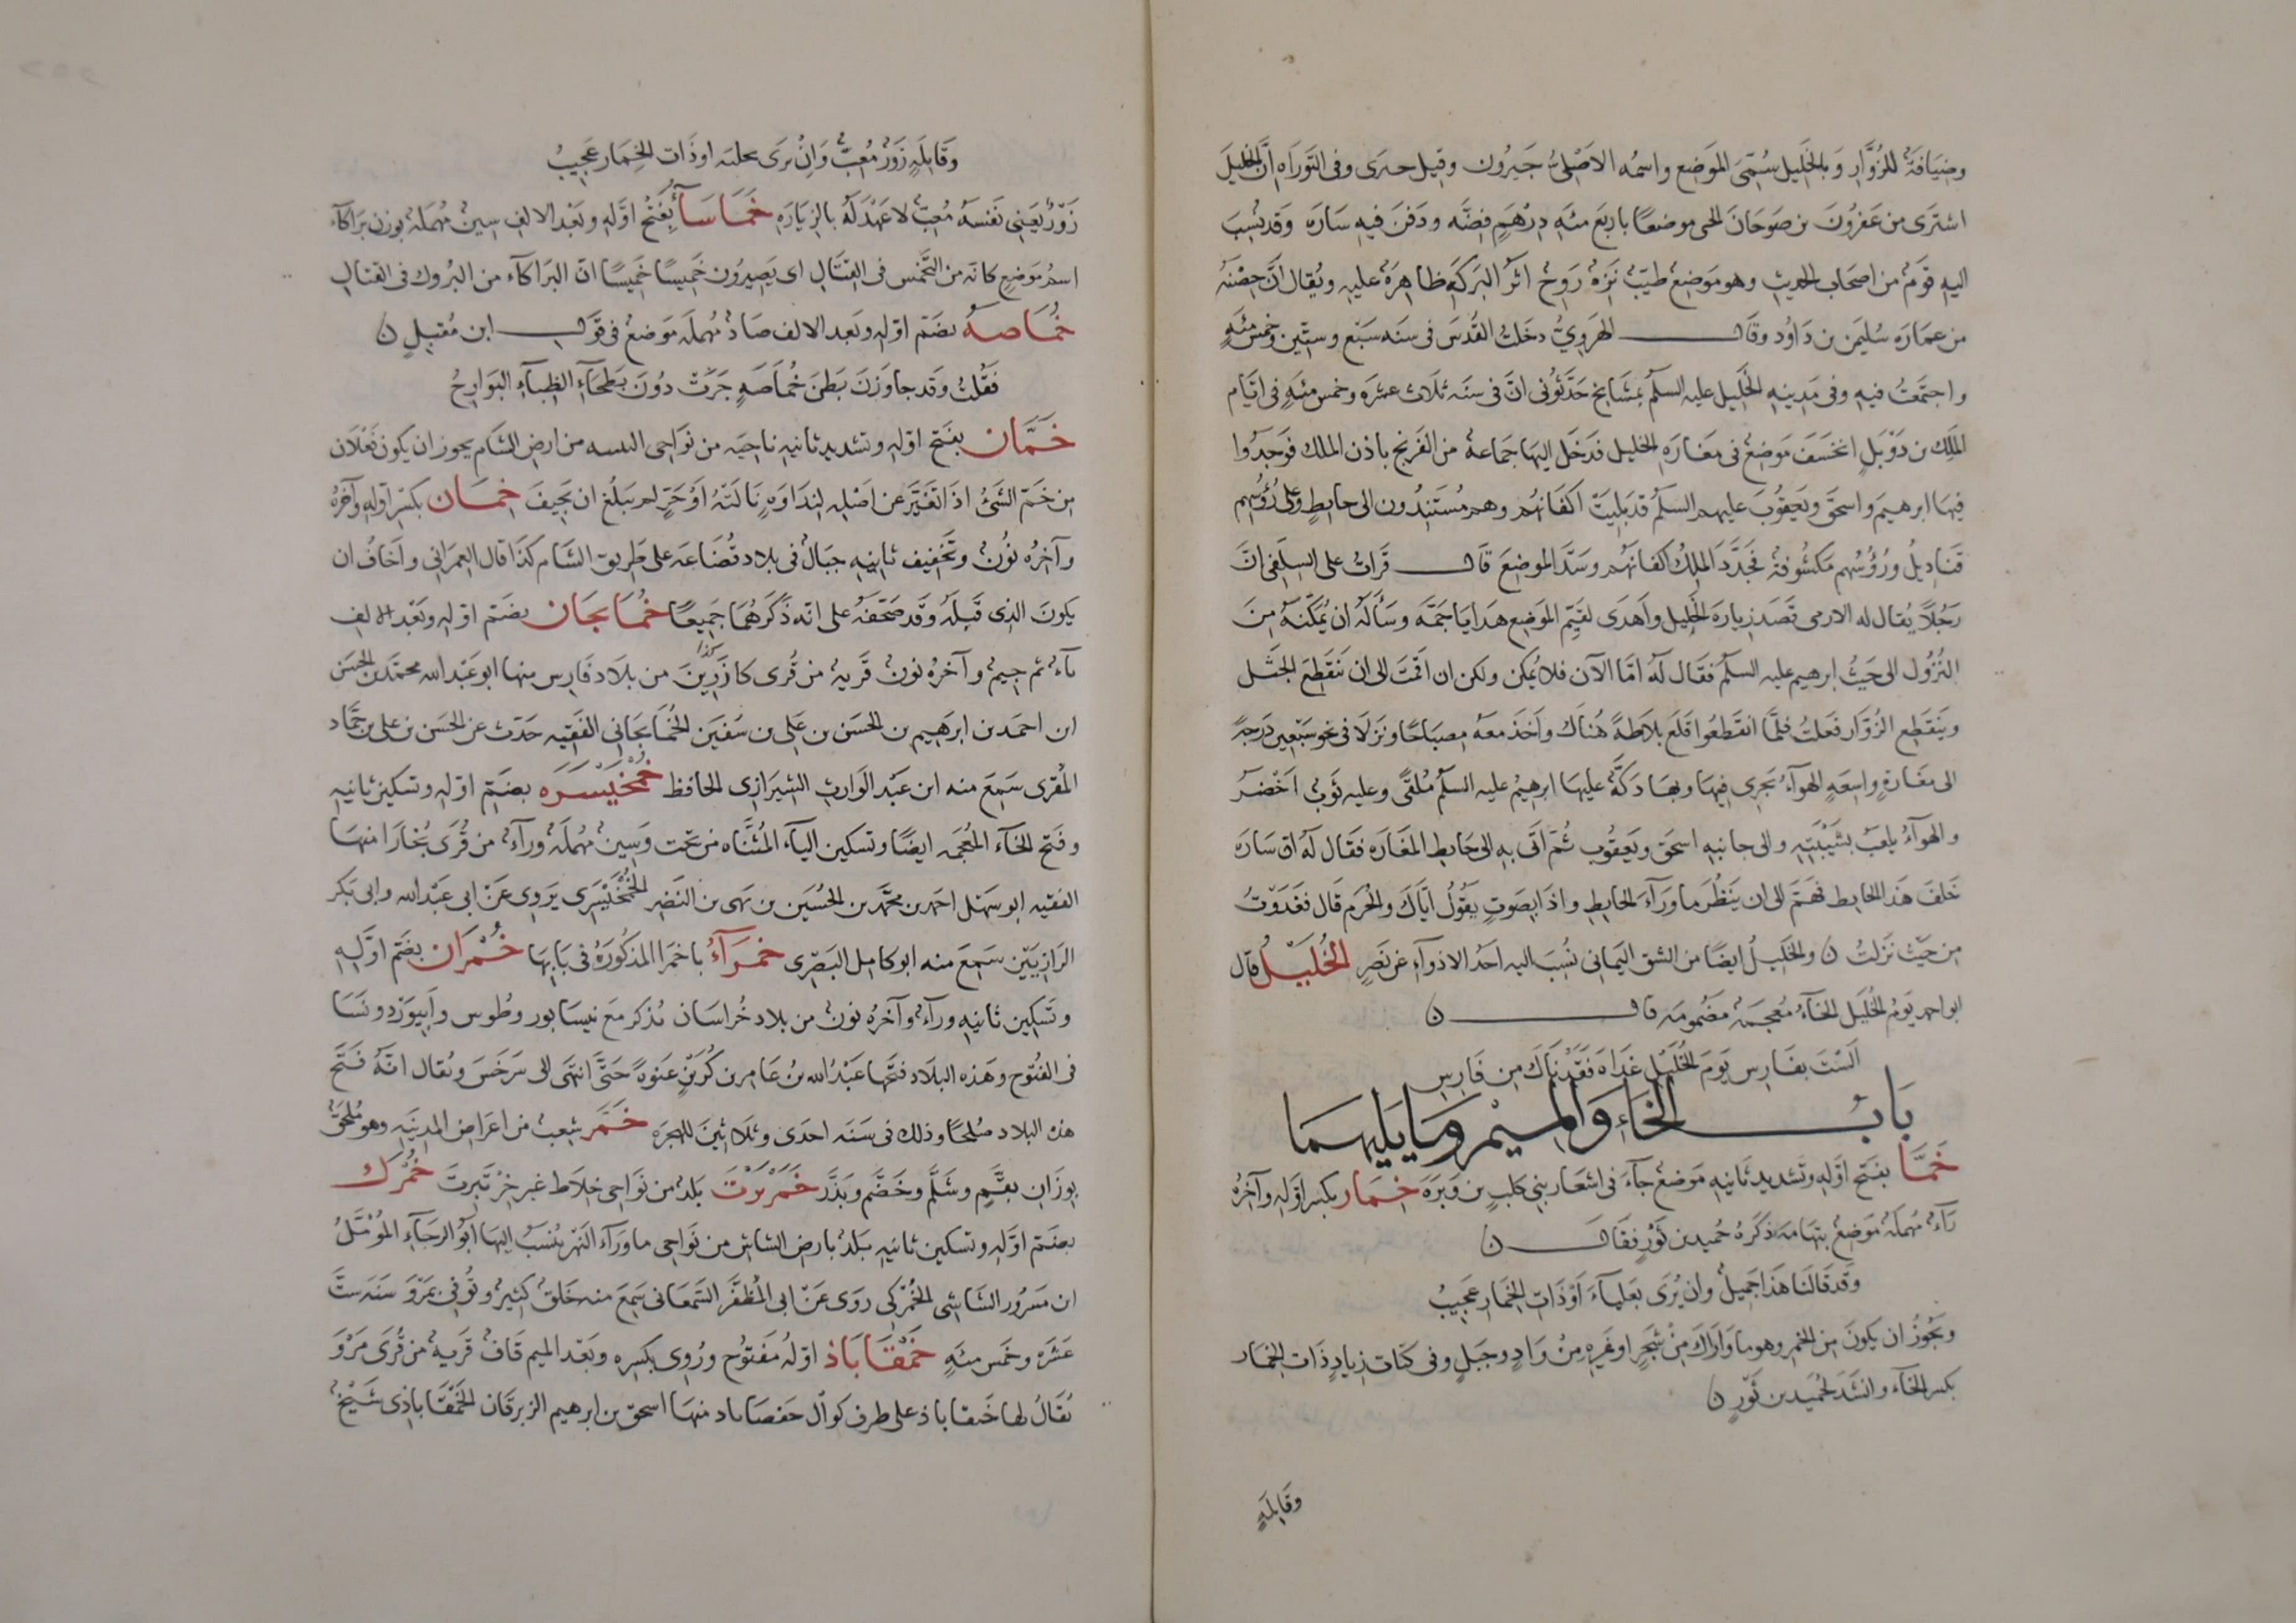 وضيافة للزوار وبالخليل سمي الموضع واسمه الاصلي جيرون وقيل حبرى وفي التوراه ان الخليل
اشترى من عفرون بن صوحان الحى موضعا باربع مئه درهم فضه ودفن فيه ساره وقد نسب
اليه قوم من اصحاب الحديث وهو موضع طيب نزه روح اثر البركة ظاهرة عليه ويقال ان حصنه
من عماره سليمن بن داود وقال الهروي دخلت القدس في سنه سبع وستين وخمس مئه
واجتمعت فيه وفي مدينه الخليل عليه السلم بمشايخ حدثوني ان في سنه ثلاث عشره وخمس مئه في ايام
الملك بن دوبل انخسف موضع في مغاره الخليل فدخل اليها جماعة من الفرنج باذن الملك فوجدوا
فيها ابرهيم واسحق ويعقوب عليهم السلم قد بليت اكفانهم وهم مستندون الى حايط وعلى رؤوسهم
قناديل ورؤوسهم مكشوفة فجدد الملك اكفانهم وسد الموضع قال قرات على السلفي ان
رجلا يقال له الارمى قصد زيارة الخليل واهدى لقيم الموضع هدايا جمة وساله ان يمكنه من
النزول الى حيث ابرهيم عليه السلم فقال له اما الآن فلا يمكن ولكن ان اقمت الى ان ننقطع الجثل
وينقطع الزوار فعلت فلما انقطعوا قلع بلاطة هناك واخذ معه مصباحا ونزلا في نحو سبعين درجة
الى مغارة واسعة الهوآء يجرى فيها وبها دكة عليها ابرهيم عليه السلم ملقى وعليه ثوب اخضر
والهوآء يلعب بشيبته والى جانبه اسحق ويعقوب ثم اتى به الى حايط المغاره فقال له ان ساره
خلف هذا الحايط فهم الى ان ينظر ما ورآء الحايط واذا بصوت يقول اياك والحرم قال فعدوت
من حيث نزلت ن والخليل ايضا من الشق اليماني نسب اليه احد الاذوآء عن نصر الخليل قال
ابو احمد يوم الخليل الخآء معجمة مضمومه قال ن
الست بفارس يوم الخليل غداه فقدناك من فارس
باب الخاء والميم وما يليهما
خما بفتح اوله وتشديد ثانيه موضع جآء في اشعار بني كلب بن وبره خمار بكسر اوله وآخره
رآء مهملة موضع بتهامه ذكره حميد بن ثور فقال ن
وقد قالتا هذا جميل وان يرى بعلياء او ذات الخمار عجيب
ويجوز ان يكون من الخمر وهو ما واراك من شجر او غيره من واد وجبل وفي كتاب زياد ذات الخمار
بكسر الخآء وانشد لحميد بن ثور ن
وقايلة
وقايلة زور مغب وان يرى بحلية او ذات الخمار عجيب
زور يعني نفسه مغب لا عهد له بالزياره خماساء بفتح اوله وبعد الالف سين مهملة بوزن براكآء
اسم موضع كانه من التخمس في القتال اى يصيرون خميسا خميسا ان البراكآء من البروك في القتال
خماصه بضم اوله وبعد الالف صاد مهملة موضع في قول ابن مقبل ن
فقلت وقد جاوزن بطن خماصة جرت دون بطحآء الظبآء البوارح
خمان بفتح اوله وتشديد ثانيه ناحيه من نواحى البثنيه من ارض الشام يجوز ان يكون فعلان
من خم الشئ اذا تغير عن اصله لنداوة نالته او حر لم يبلغ ان يجيف خمان بكسر اوله وآخره
وآخره نون وتخفيف ثانيه جبال في بلاد قضاعه على طريق الشام كذا قال العمراني واخاف ان
يكون الذي قبله وقد صحفه على انه ذكرهما جميعا خمايجان بضم اوله وبعد الالف
يآء ثم جيم وآخره نون قرية من قرى كازرين كذا من بلاد فارس منها ابو عبد الله محمد بن الحسن
ابن احمد بن ابرهيم بن الحسن بن على بن سفين الخمايجاني الفقيه حدث عن الحسن بن على بن حماد
المقرى سمع منه ابن عبد الوارث الشيرازى الحافظ خمخيسره بضم اوله وتسكين ثانيه
وفتح الخآء المعجمه ايضا وتسكين اليآء المثناه من تحت وسين مهملة ورآء من قرى بخارا منها
الفقيه ابو سهل احمد بن محمد بن الحسين بن نهى بن النضر الخمخيسرى يروى عن ابى عبد الله وابى بكر
الرازيين سمع منه ابو كامل البصرى خمرآء باخمرا المذكوره في بابها خمران بضم اوله
وتسكين ثانيه ورآء وآخره نون من بلاد خراسان تذكر مع نيسابور وطوس وابيورد ونسا
في الفتوح وهذه البلاد فتحها عبد الله بن عامر بن كريز عنوة حتى انتهى الى سرخس ويقال انه فتح
هذه البلاد صلحا وذلك في سنه احدى وثلاثين للهجره خمر شعب من اعراض المدينه وهو ملحق
بوزان بقم وشلم وخضم وبذر خمرتبرت بلد من نواحى خلاط غير خرتبرت خمرك
بضم اوله وتسكين ثانيه بلد بارض الشاش من نواحى ماورآء النهر ينسب اليها ابو الرجآء المؤمل
ابن مسرور الشاشى الخمركى روى عن ابى المظفر السمعانى سمع منه خلق كثير وتوفي بمرو سنه ست
عشره وخمس مئه خمقاباذ اوله مفتوح وروى بكسره وبعد الميم قاف قرية من قرى مرو
يقال لها خنقاباذ على طرف كوال حفصاباد منها اسحق بن ابرهيم الزبرقان الخمقاباذى شيخ